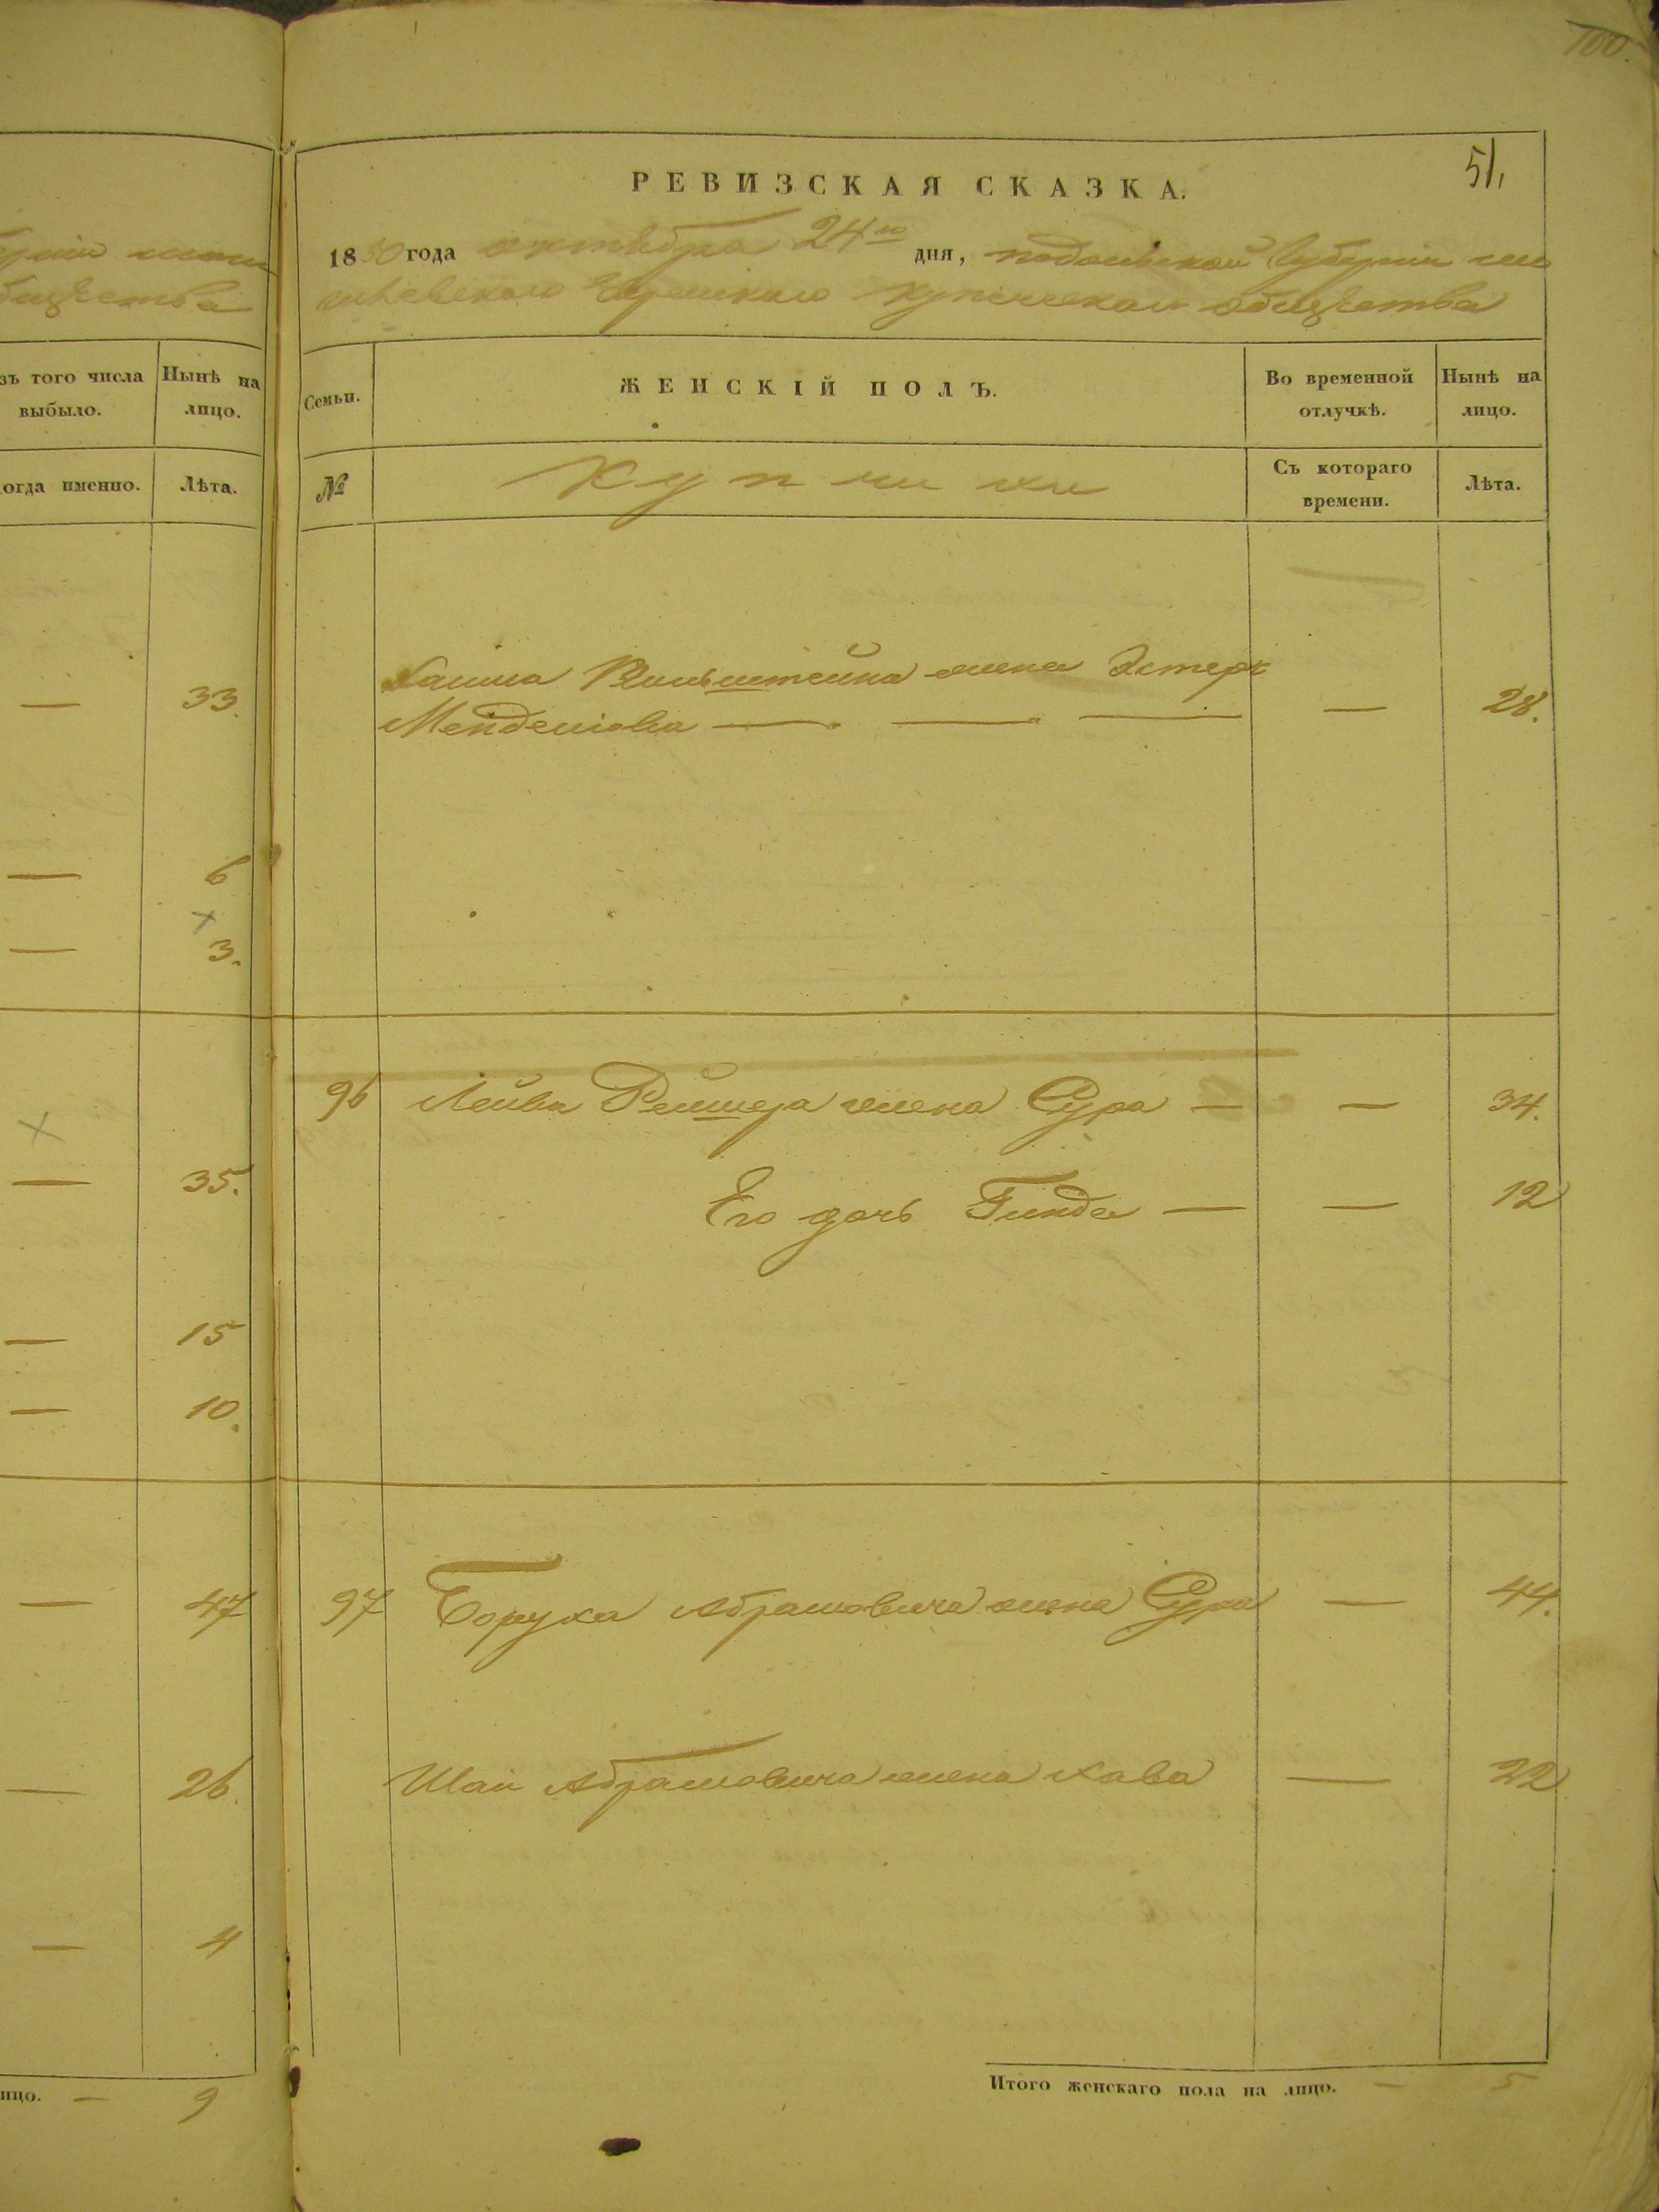 100.
51,
РЕВИЗСКАЯ СКАЗКА.
1850 года октября 24го дня, подольской губерніи мо
гилевскаго Еврейскаго купеческаго общества
общества
зъ того числа выбыло.
Нынѣ на лицо.
огда именно.
Лѣта.
Семьи.
ЖЕНСКІЙ ПОЛЪ.
Во временной отлучкѣ.
Нынѣ на лицо.
№
Купчихи
Съ котораго времени.
Лѣта.
— 33.
жена Эстеръ
— — — — 28.
— 6
×
— 3.
96 Лейбы Рейшера жена Сура — — 34.
×
— 35.
Его дочь Гинда — — 12
— 15
— 10.
— 47
97 Боруха Абрамовича жена Сура — 44.
— 26.
Шаи Абрамовича жена Хава — 22
— 4
ицо. — 9
Итого женскаго пола на лицо. — 5